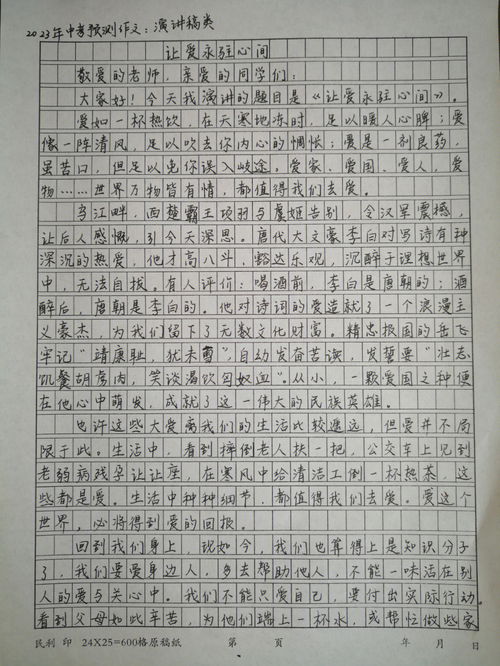 2023年中考预测作文：演讲稿类
让爱永驻心间
敬爱的老师，亲爱的同学们：
大家好！今天我演讲的题目是《让爱永驻心间》。
爱如一杯热饮，在天寒地冻时，足以暖人心脾；爱
像一阵清风，足以吹去你内心的惆怅；爱是一剂良药，
虽苦口，但足以免你误入歧途。爱家、爱国、爱人，爱
物……世界万物皆有情，都值得我们去爱。
乌江畔，西楚霸王项羽与虞姬告别，令汉军震撼，
让后人感慨，引今天深思。唐代大文豪李白对写诗有种
深沉的热爱，他才高八斗，豁达乐观，沉醉于理想世界
中，无法自拔。有人评价：喝酒前，李白是唐朝的；酒
醉后，唐朝是李白的。他对诗词的爱造就了一个浪漫主
义豪杰，为我们留下了无数文化财富。精忠报国的岳飞
牢记“靖康耻，犹未雪”，自幼发奋苦读，发誓要“壮志
饥餐胡虏肉，笑谈渴饮匈奴血”。从小，一颗爱国之种便
在他心中萌发，成就了这一伟大的民族英雄。
也许这些大爱离我们的生活比较遥远，但爱并不局
限于此。生活中，看到摔倒老人扶一把，公交车上见到
老弱病残孕让让座，在寒风中给清洁工倒一杯热茶，这
些都是爱。生活中种种细节，都值得我们去爱。爱这个
世界，必将得到爱的回报。
回到我们身上，现如今，我们也算得上是知识分子
了，我们要爱身边人，多去帮助他人，不能一味活在别
人的爱与关心中。我们不能只爱自己，要付出实际行动
看到父母如此辛苦，为他们端上一杯水，或帮忙做些家
民利 印 24X25=600格原稿纸 第 页 年 月 日